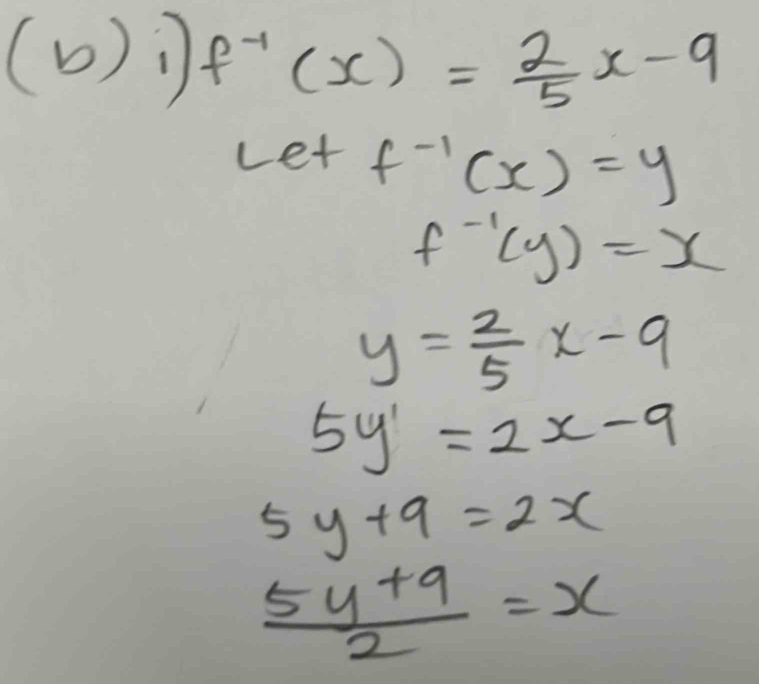 (b) i) f⁻¹(x) = 2/5 x - 9
Let f⁻¹(x) = y
f⁻¹(y) = x
y = 2/5 x - 9
5y' = 2x - 9
5y + 9 = 2x
(5y + 9)/2 = x